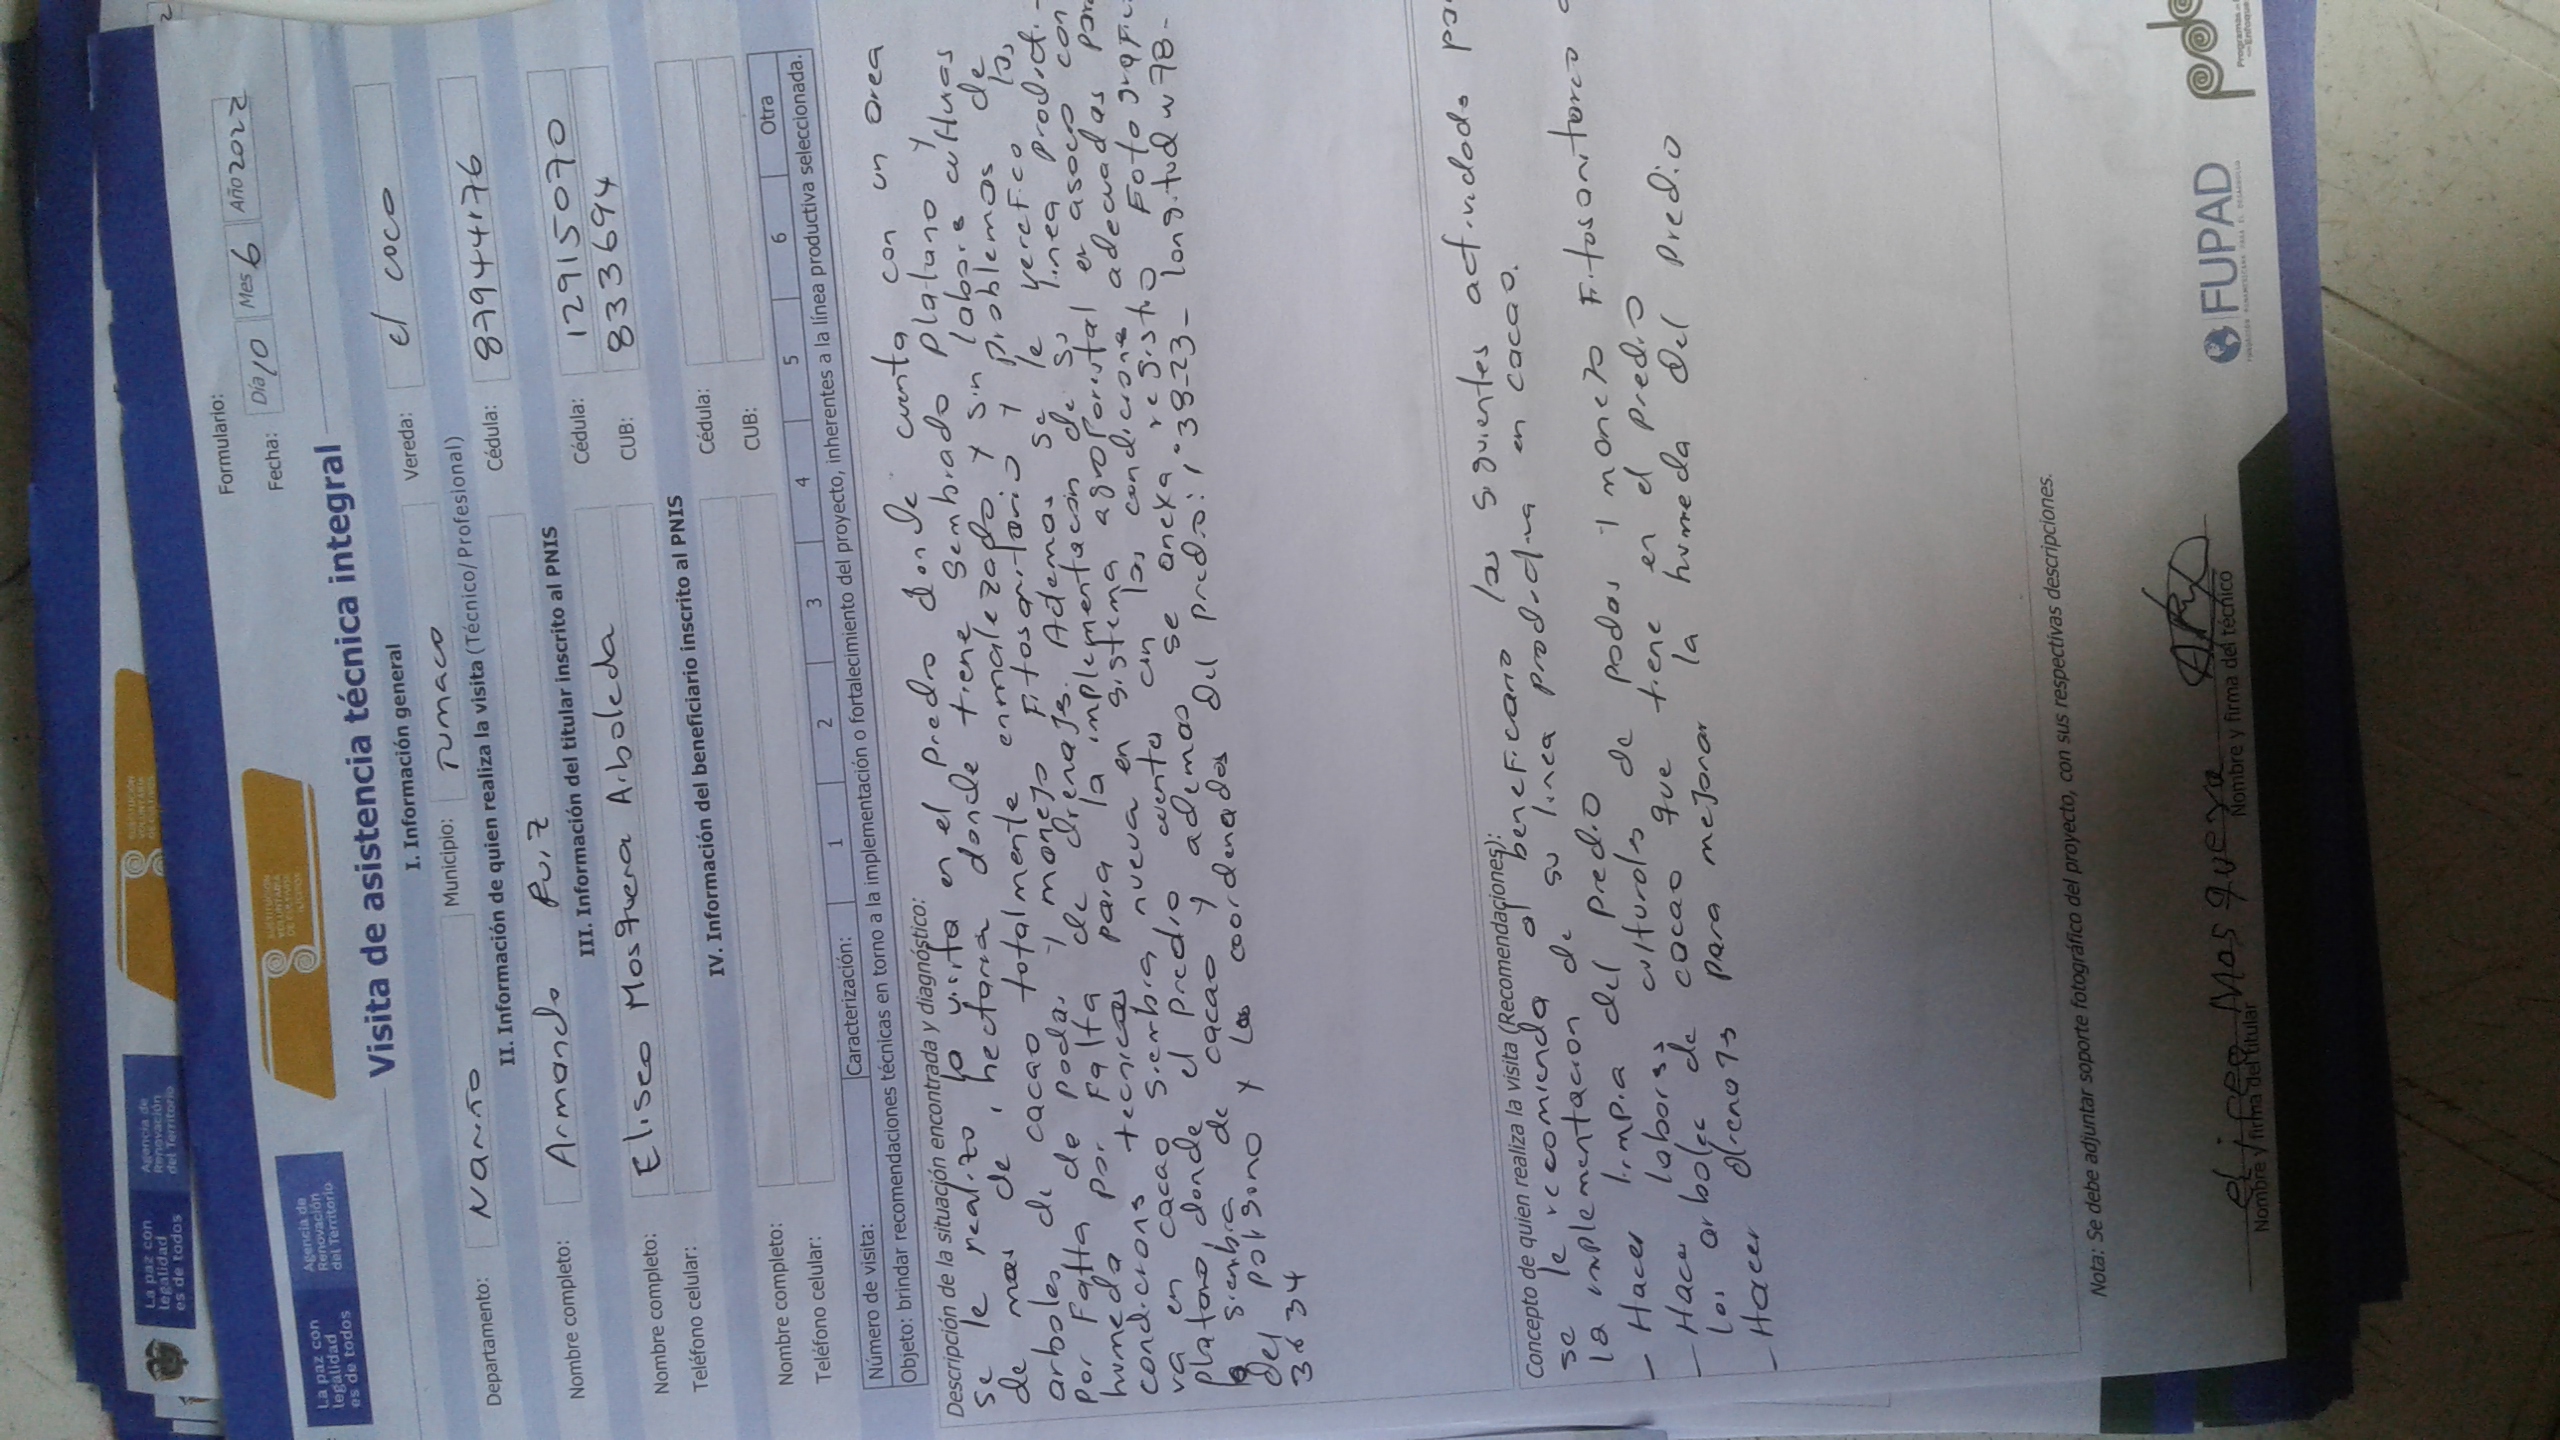 La paz con
legalidad
es de todos
Agencia de
Renovación
del Territorio
SUSTITUCIÓN
VOLUNTARIA
DE CULTIVOS
ILÍCITOS
Formulario:
Fecha: Día 10 Mes 6 Año 2022
Visita de asistencia técnica integral
I. Información general
Departamento: Nariño Municipio: Tumaco Vereda: el coco
II. Información de quien realiza la visita (Técnico/Profesional)
Nombre completo: Armando Ruiz Cédula: 87944176
III. Información del titular inscrito al PNIS
Nombre completo: Eliseo Mosquera Arboleda Cédula: 12915070
Teléfono celular: CUB: 8336994
IV. Información del beneficiario inscrito al PNIS
Nombre completo: Cédula:
Teléfono celular: CUB:
Número de visita: Caracterización: 1 2 3 4 5 6 Otra
Objeto: brindar recomendaciones técnicas en torno a la implementación o fortalecimiento del proyecto, inherentes a la línea productiva seleccionada.
Descripción de la situación encontrada y diagnóstico:
se le realizo la visita en el predio donde cuenta con un area
de mas de 1 hectaria donde tiene sembrado platano y
arboles de cacao totalmente enmalezado y sin labore culturas
por falta de podas y manejo fitosanitario y problemas de
humeda por falta de drenajs. Ademas se le verefico las
condicions tecnicas para la implementacion de su linea producti-
va en cacao siembra nueva en sistema agroforestal en asocio con
platano, donde el predio cuenta con las condicione adecuadas para
la siembra de cacao y ademas se anexa registro Fotografic
del poligono y las coordenadas del predio: 1°38-23- longitud w78-
3634
Concepto de quien realiza la visita (Recomendaciones):
se le recomienda al beneficario las siguientes actividads pa
la implementacion de su linea productiva en cacao.
- Hacer limpia del predio
- Hacer labors culturals de podas y manejo Fitosanitareo
los arboles de cacao que tiene en el predio
- Hacer drenajs para mejorar la humeda del predio
Nota: Se debe adjuntar soporte fotográfico del proyecto, con sus respectivas descripciones.
Mosquera
Nombre y firma del titular
Nombre y firma del técnico
FUPAD